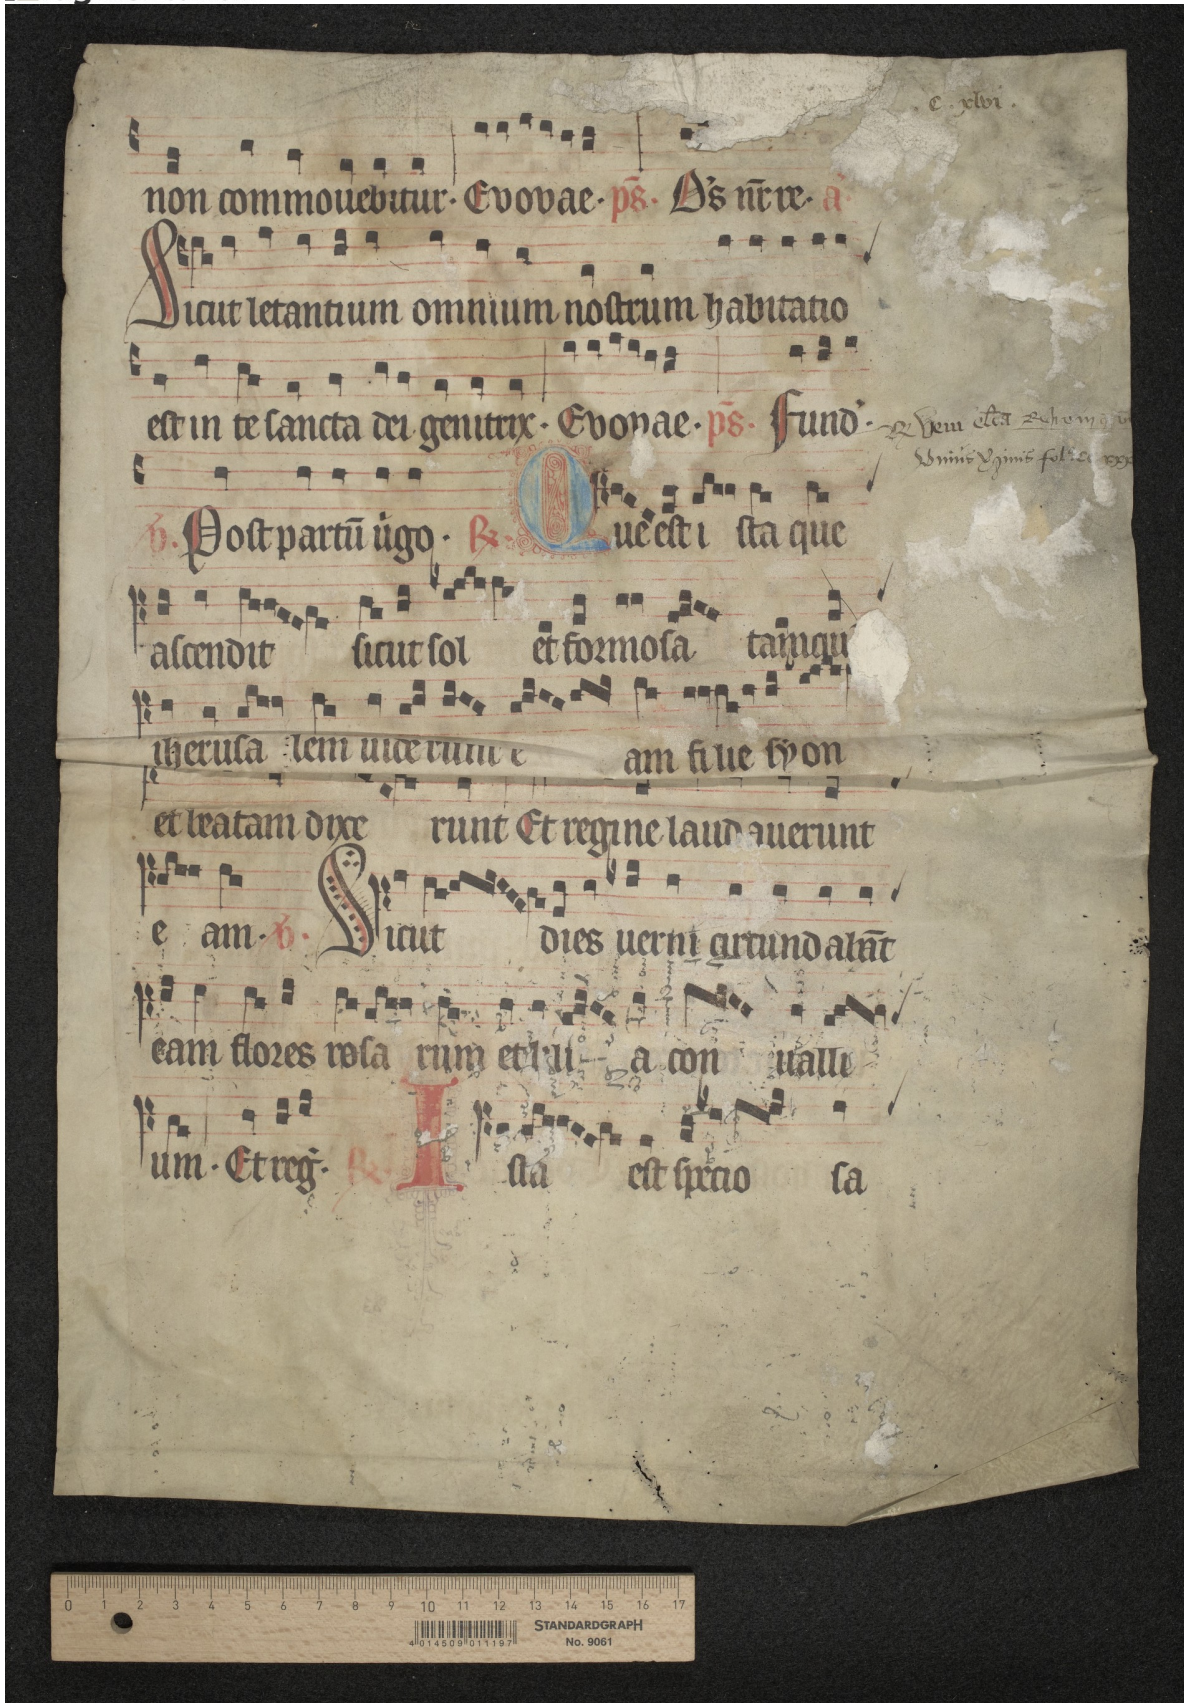 C . xlvi .
non commouebitur · Evovae · ps̄ · D's nr̄ re · a
Sicut letantium omnium nostrum habitatio
est in te sancta dei genitrix · Evovae · ps̄ · Fund'
℣. Post partū ūgo · ℟. Que est i sta que
ascendit sicut sol et formosa tamqu
iherusa lem uiderunt e am filie syon
et beatam dixe runt Et regine laudauerunt
e am · ℣. Sicut dies uerni circundabāt
eam flores rosa rum et lili a con ualli
um · Et reḡ · ℟. I sta est specio sa
0 1 2 3 4 5 6 7 8 9 10 11 12 13 14 15 16 17
4 014509 011197
STANDARDGRAPH
No. 9061